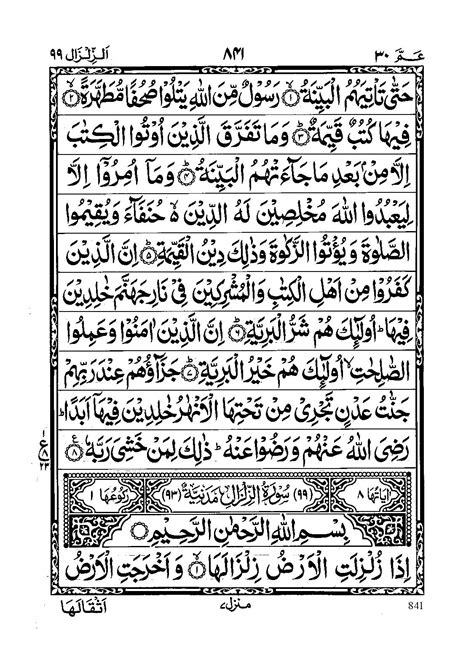 عـمّ ٣٠ ٨٤١ الزلزال ٩٩
حَتّٰى تَاْتِيَهُمُ الْبَيِّنَةُ ۙ﴿۱﴾ رَسُوْلٌ مِّنَ اللّٰهِ يَتْلُوْا صُحُفًا مُّطَهَّرَةً ۙ﴿۲﴾
فِيْهَا كُتُبٌ قَيِّمَةٌ ؕ﴿۳﴾ وَمَا تَفَرَّقَ الَّذِيْنَ اُوْتُوا الْكِتٰبَ
اِلَّا مِنْۢ بَعْدِ مَا جَآءَتْهُمُ الْبَيِّنَةُ ؕ﴿۴﴾ وَمَاۤ اُمِرُوْۤا اِلَّا
لِيَعْبُدُوا اللّٰهَ مُخْلِصِيْنَ لَهُ الدِّيْنَ ۙ۬ حُنَفَآءَ وَيُقِيْمُوا
الصَّلٰوةَ وَيُؤْتُوا الزَّكٰوةَ وَذٰلِكَ دِيْنُ الْقَيِّمَةِ ؕ﴿۵﴾ اِنَّ الَّذِيْنَ
كَفَرُوْا مِنْ اَهْلِ الْكِتٰبِ وَالْمُشْرِكِيْنَ فِيْ نَارِ جَهَنَّمَ خٰلِدِيْنَ
فِيْهَا ؕ اُولٰٓئِكَ هُمْ شَرُّ الْبَرِيَّةِ ؕ﴿۶﴾ اِنَّ الَّذِيْنَ اٰمَنُوْا وَعَمِلُوا
الصّٰلِحٰتِ ۙ اُولٰٓئِكَ هُمْ خَيْرُ الْبَرِيَّةِ ؕ﴿۷﴾ جَزَآؤُهُمْ عِنْدَ رَبِّهِمْ
جَنّٰتُ عَدْنٍ تَجْرِيْ مِنْ تَحْتِهَا الْاَنْهٰرُ خٰلِدِيْنَ فِيْهَاۤ اَبَدًا ؕ
رَضِيَ اللّٰهُ عَنْهُمْ وَرَضُوْا عَنْهُ ؕ ذٰلِكَ لِمَنْ خَشِيَ رَبَّهٗ ﴿۸﴾
١ ع ٨ ٢٣
اٰيَاتُهَا ٨ (٩٩) سُوْرَةُ الزِّلْزَالِ مَدَنِيَّةٌ (٩٣) رُكُوْعُهَا ١
بِسْمِ اللّٰهِ الرَّحْمٰنِ الرَّحِيْمِ
اِذَا زُلْزِلَتِ الْاَرْضُ زِلْزَالَهَا ۙ﴿۱﴾ وَاَخْرَجَتِ الْاَرْضُ
841 منزل ٧ اَثْقَالَهَا